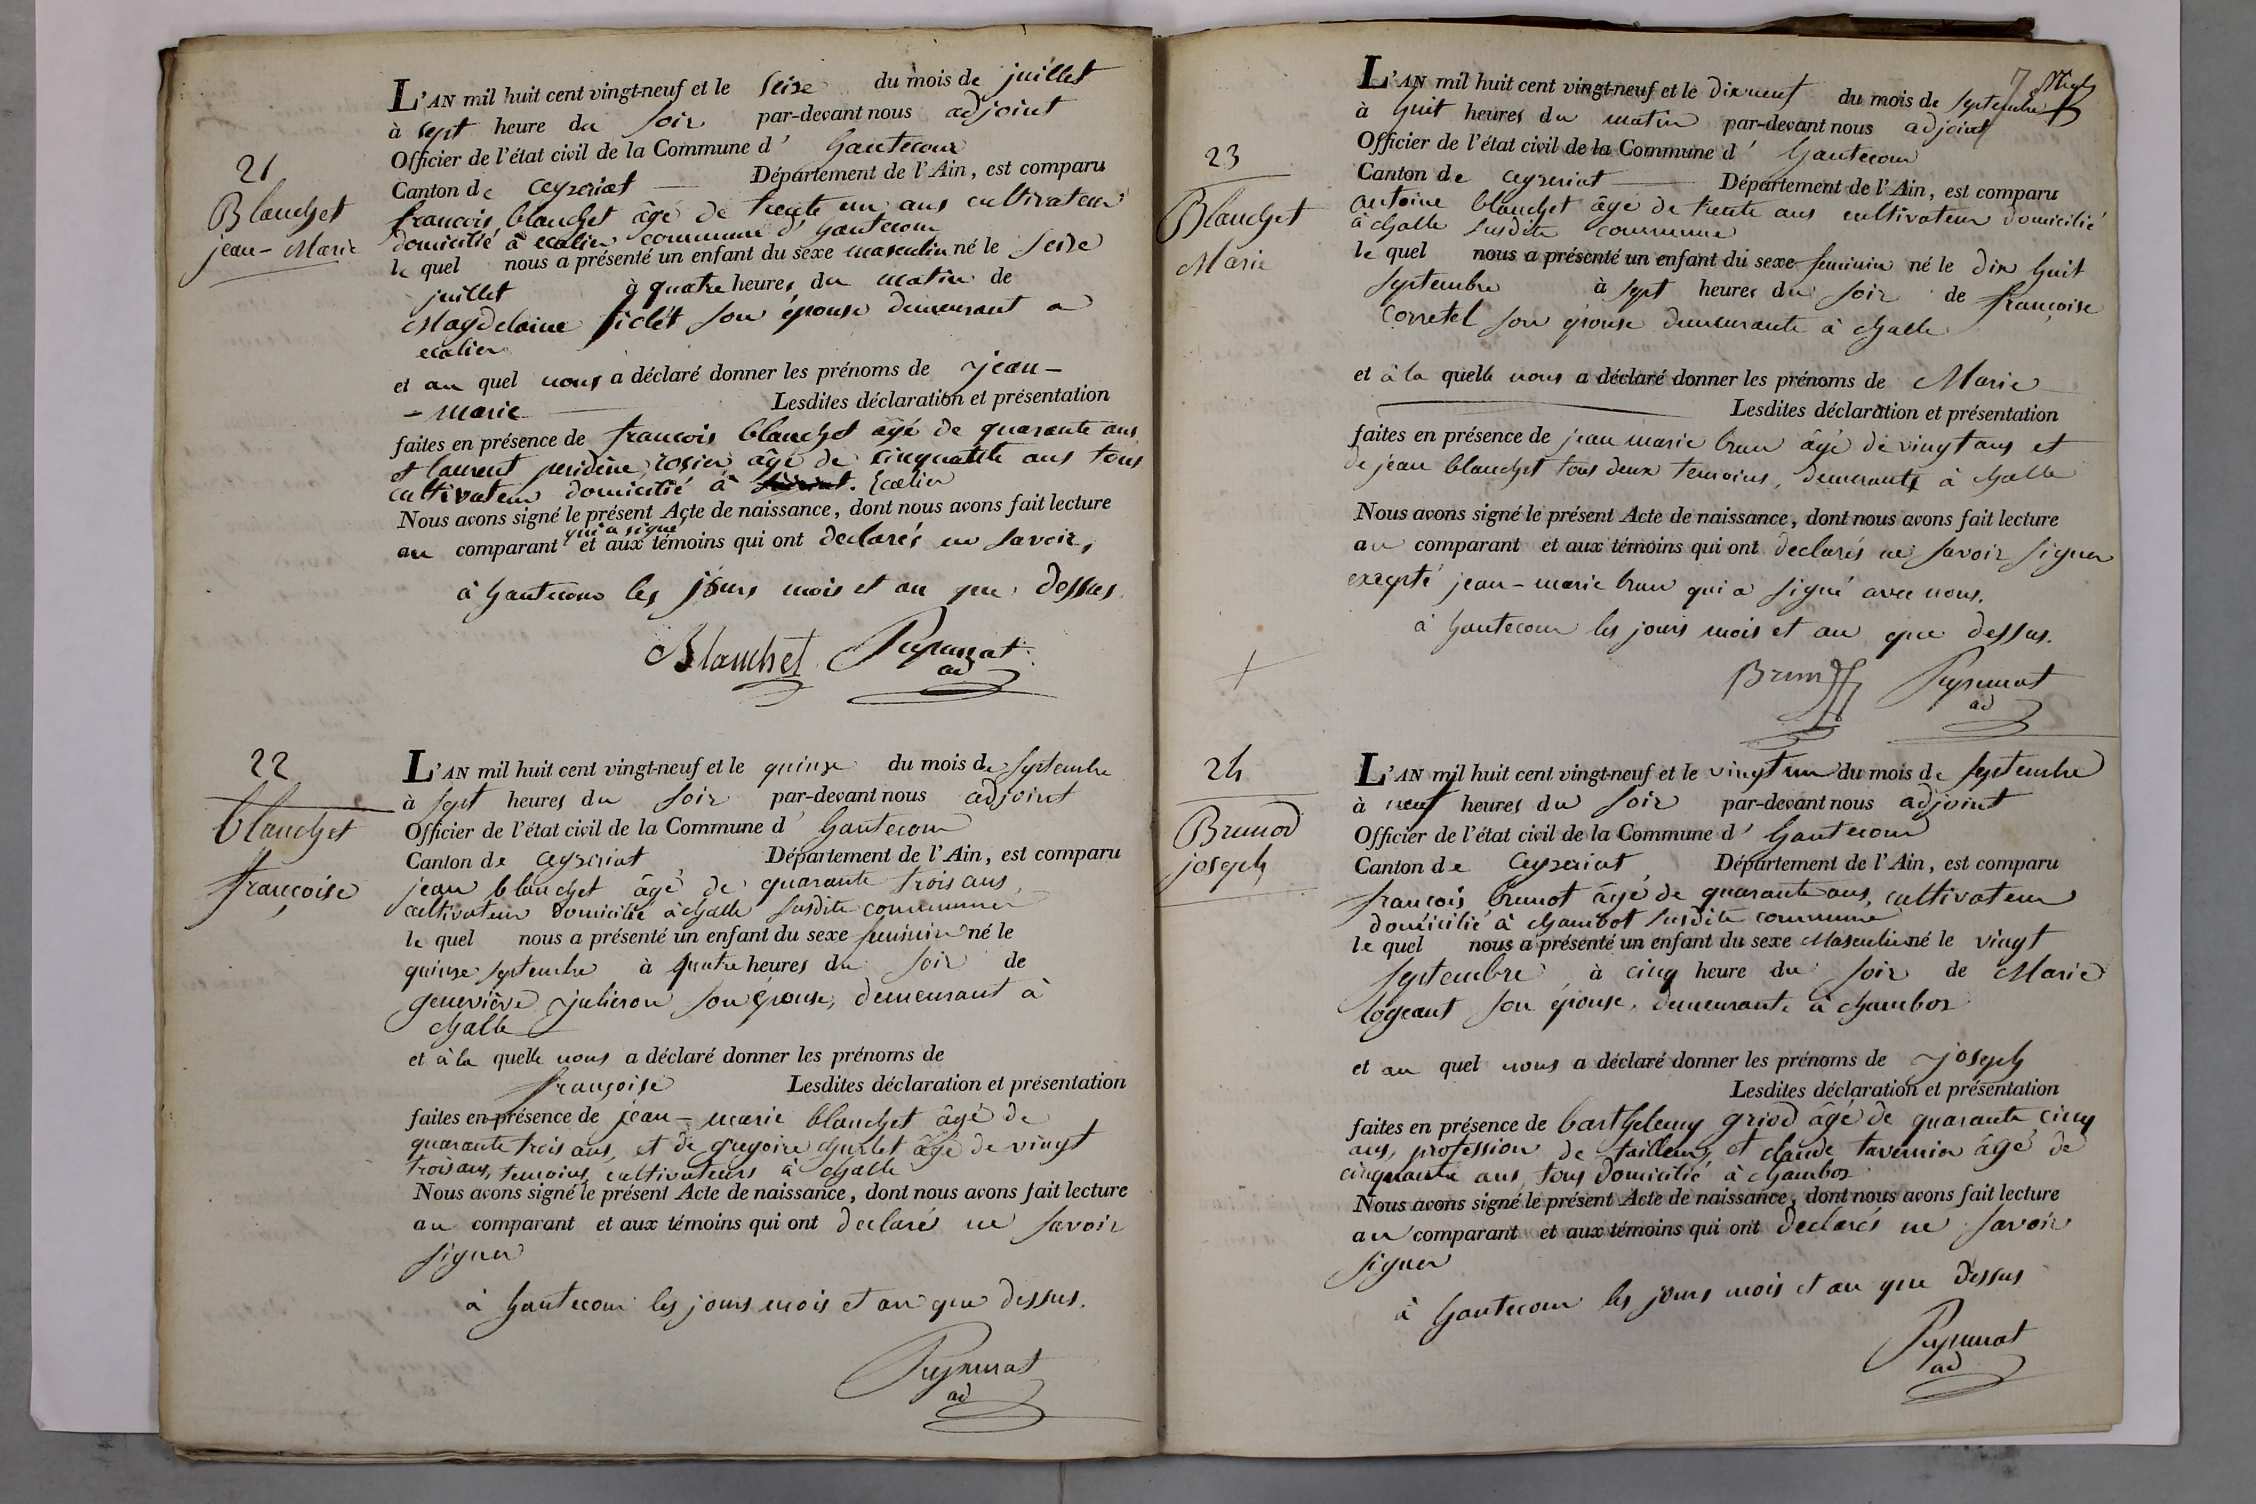 21
Blanchet
jean-Marie
L'AN mil huit cent vingt-neuf et le seize du mois de juillet
à sept heure du soir par-devant nous adjoint
Officier de l'état civil de la Commune d' hautecour
Canton de ceyzeriat Département de l'Ain, est comparu
francois blanchet âgé de trente un ans cultivateur
domicilié à ecolier commune d'hautecour
le quel nous a présenté un enfant du sexe masculin né le seize
juillet à quatre heures du matin de
Magdelaine son épouse demeurant a
ecolier
et au quel nous a déclaré donner les prénoms de jean-
-marie Lesdites déclaration et présentation
faites en présence de francois blanchet âgé de quarante ans
et laurent rosier âgé de cinquante ans tous
cultivateur domicilié à Ecolier
Nous avons signé le présent Acte de naissance, dont nous avons fait lecture
qui a signé
au comparant et aux témoins qui ont declarés ne savoir,
à hautecour les jours mois et an que dessus.
Blanchet
ad
22
blanchet
françoise
L'AN mil huit cent vingt-neuf et le quinze du mois de septembre
à sept heures du soir par-devant nous adjoint
Officier de l'état civil de la Commune d' hautecour
Canton de ceyzeriat Département de l'Ain, est comparu
jean blanchet âgé de quarante trois ans
cultivateur domicilié à challe susdite commune
le quel nous a présenté un enfant du sexe feminin né le
quinze septembre à quatre heures du soir de
geneviève julieron son épouse, demeurant à
challe
et à la quelle nous a déclaré donner les prénoms de
françoise Lesdites déclaration et présentation
faites en présence de jean-marie blanchet âgé de
quarante trois ans, et de gregoire âgé de vingt
trois ans, temoins, cultivateurs à challe
Nous avons signé le présent Acte de naissance, dont nous avons fait lecture
au comparant et aux témoins qui ont declaré ne savoir
signer
à hautecour les jours mois et an que dessus.
ad
7
23
Blanchet
Marie
L'AN mil huit cent vingt-neuf et le dix neuf du mois de septembre
à huit heures du matin par-devant nous adjoint
Officier de l'état civil de la Commune d' hautecour
Canton de ceyzeriat Département de l'Ain, est comparu
antoine blanchet âgé de trente ans cultivateur domicilié
à challe susdite commune
le quel nous a présenté un enfant du sexe feminin né le dix huit
septembre à sept heures du soir de françoise
corretel son épouse demeurante à challe
et à la quelle nous a déclaré donner les prénoms de Marie
Lesdites déclaration et présentation
faites en présence de jean marie brun âgé de vingt ans et
de jean blanchet tous deux temoins, demeurants à challe
Nous avons signé le présent Acte de naissance, dont nous avons fait lecture
au comparant et aux témoins qui ont declarés ne savoir signer
excepté jean-marie brun qui a signé avec nous.
à hautecour les jours mois et an que dessus.
Brun
ad
24
Brunod
joseph
L'AN mil huit cent vingt-neuf et le vingt un du mois de septembre
à neuf heures du soir par-devant nous adjoint
Officier de l'état civil de la Commune d' hautecour
Canton de ceyzeriat Département de l'Ain, est comparu
francois brunot âgé de quarante ans, cultivateur
domicilié à chambot susdite commune
le quel nous a présenté un enfant du sexe Masculin né le vingt
septembre à cinq heure du soir de Marie
logeant son épouse, demeurante à chambos
et au quel nous a déclaré donner les prénoms de joseph
Lesdites déclaration et présentation
faites en présence de barthelemy griod âgé de quarante cinq
ans, profession de tailleur, et claude tavernier âgé de
cinquante ans, tous domicilié à chambos
Nous avons signé le présent Acte de naissance, dont nous avons fait lecture
au comparant et aux témoins qui ont declarés ne savoir
signer
à hautecour les jours mois et an que dessus
ad